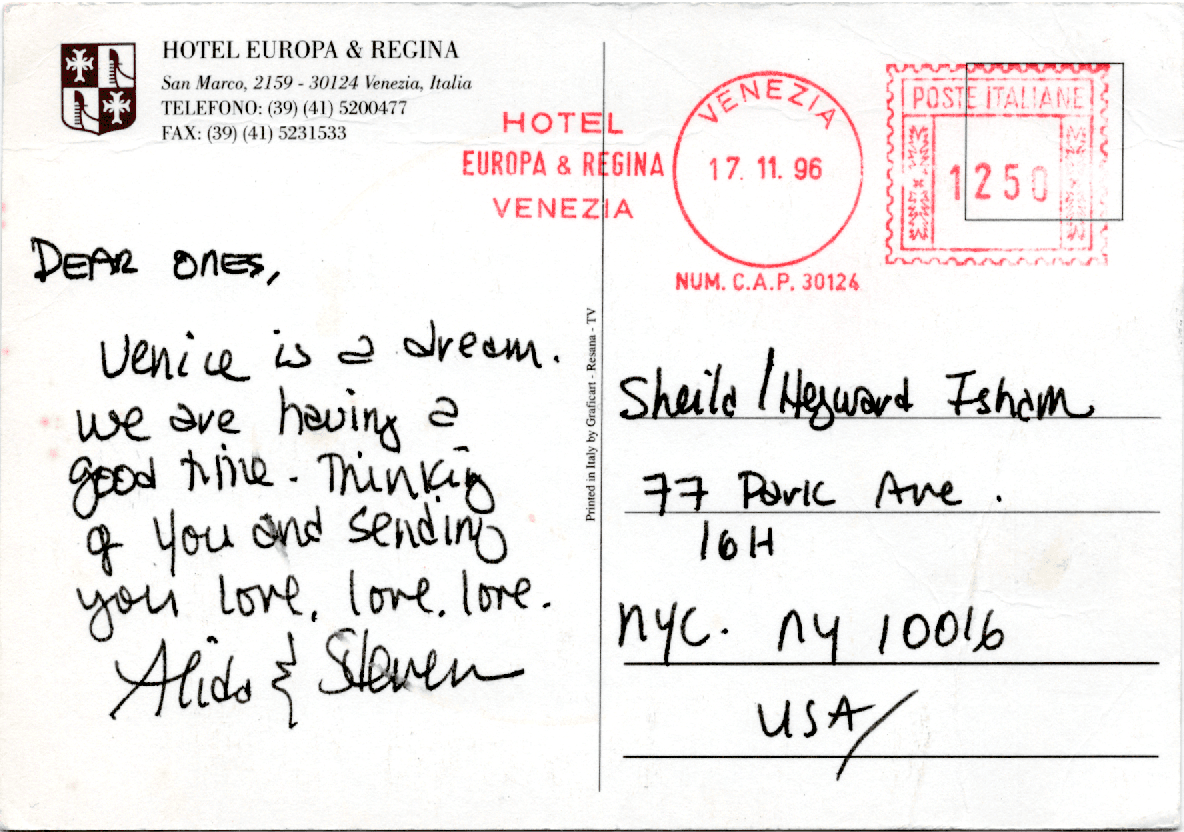 HOTEL EUROPA & REGINA
San Marco, 2159 - 30124 Venezia, Italia
TELEFONO: (39) (41) 5200477
FAX: (39) (41) 5231533
HOTEL
EUROPA & REGINA
VENEZIA
VENEZIA
17. 11. 96
NUM. C.A.P. 30124
POSTE ITALIANE
1250
DEAR ONES,
Venice is a dream.
We are having a
good time. Thinking
of you and sending
you love, love, love.
Alida & Steven
Printed in Italy by Graficart - Resana - TV
Sheila / Heyward Isham
77 Park Ave.
16H
NYC. NY 10016
USA/